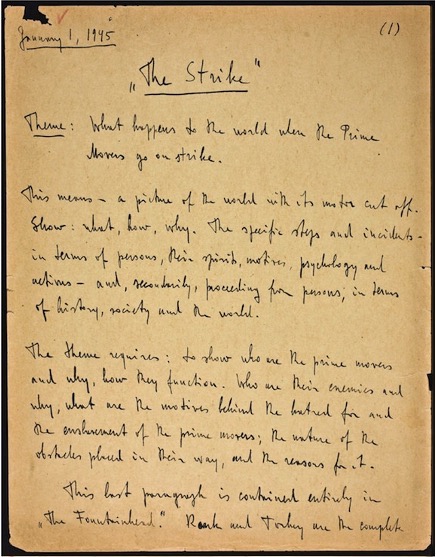 January 1, 1945
(1)
"The Strike"
Theme: What happens to the world when the Prime
Movers go on strike.
This means – a picture of the world with its motor cut off.
Show: what, how, why. The specific steps and incidents –
in terms of persons, their spirits, motives, psychology and
actions – and, secondarily, proceeding from persons, in terms
of history, society and the world.
The theme requires: to show who are the prime movers
and why, how they function. Who are their enemies and
why, what are the motives behind the hatred for and
the enslavement of the prime movers; the nature of the
obstacles placed in their way, and the reasons for it.
This last paragraph is contained entirely in
"The Fountainhead." Roark and Toohey are the complete